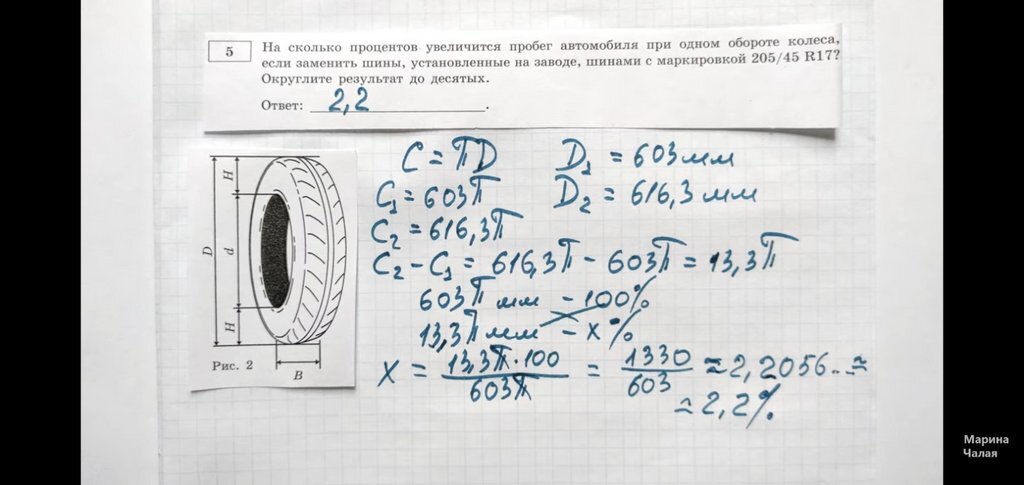 5 На сколько процентов увеличится пробег автомобиля при одном обороте колеса,
если заменить шины, установленные на заводе, шинами с маркировкой 205/45 R17?
Округлите результат до десятых.
Ответ: 2,2.
H
D
d
H
B
Рис. 2
C = πD D₁ = 603 мм
C₁ = 603π D₂ = 616,3 мм
C₂ = 616,3π
C₂ - C₁ = 616,3π - 603π = 13,3π
603π мм - 100%
13,3π мм - x%
x = 13,3π·100 / 603π = 1330 / 603 ≈ 2,2056... ≈
≈ 2,2%
Марина
Чалая